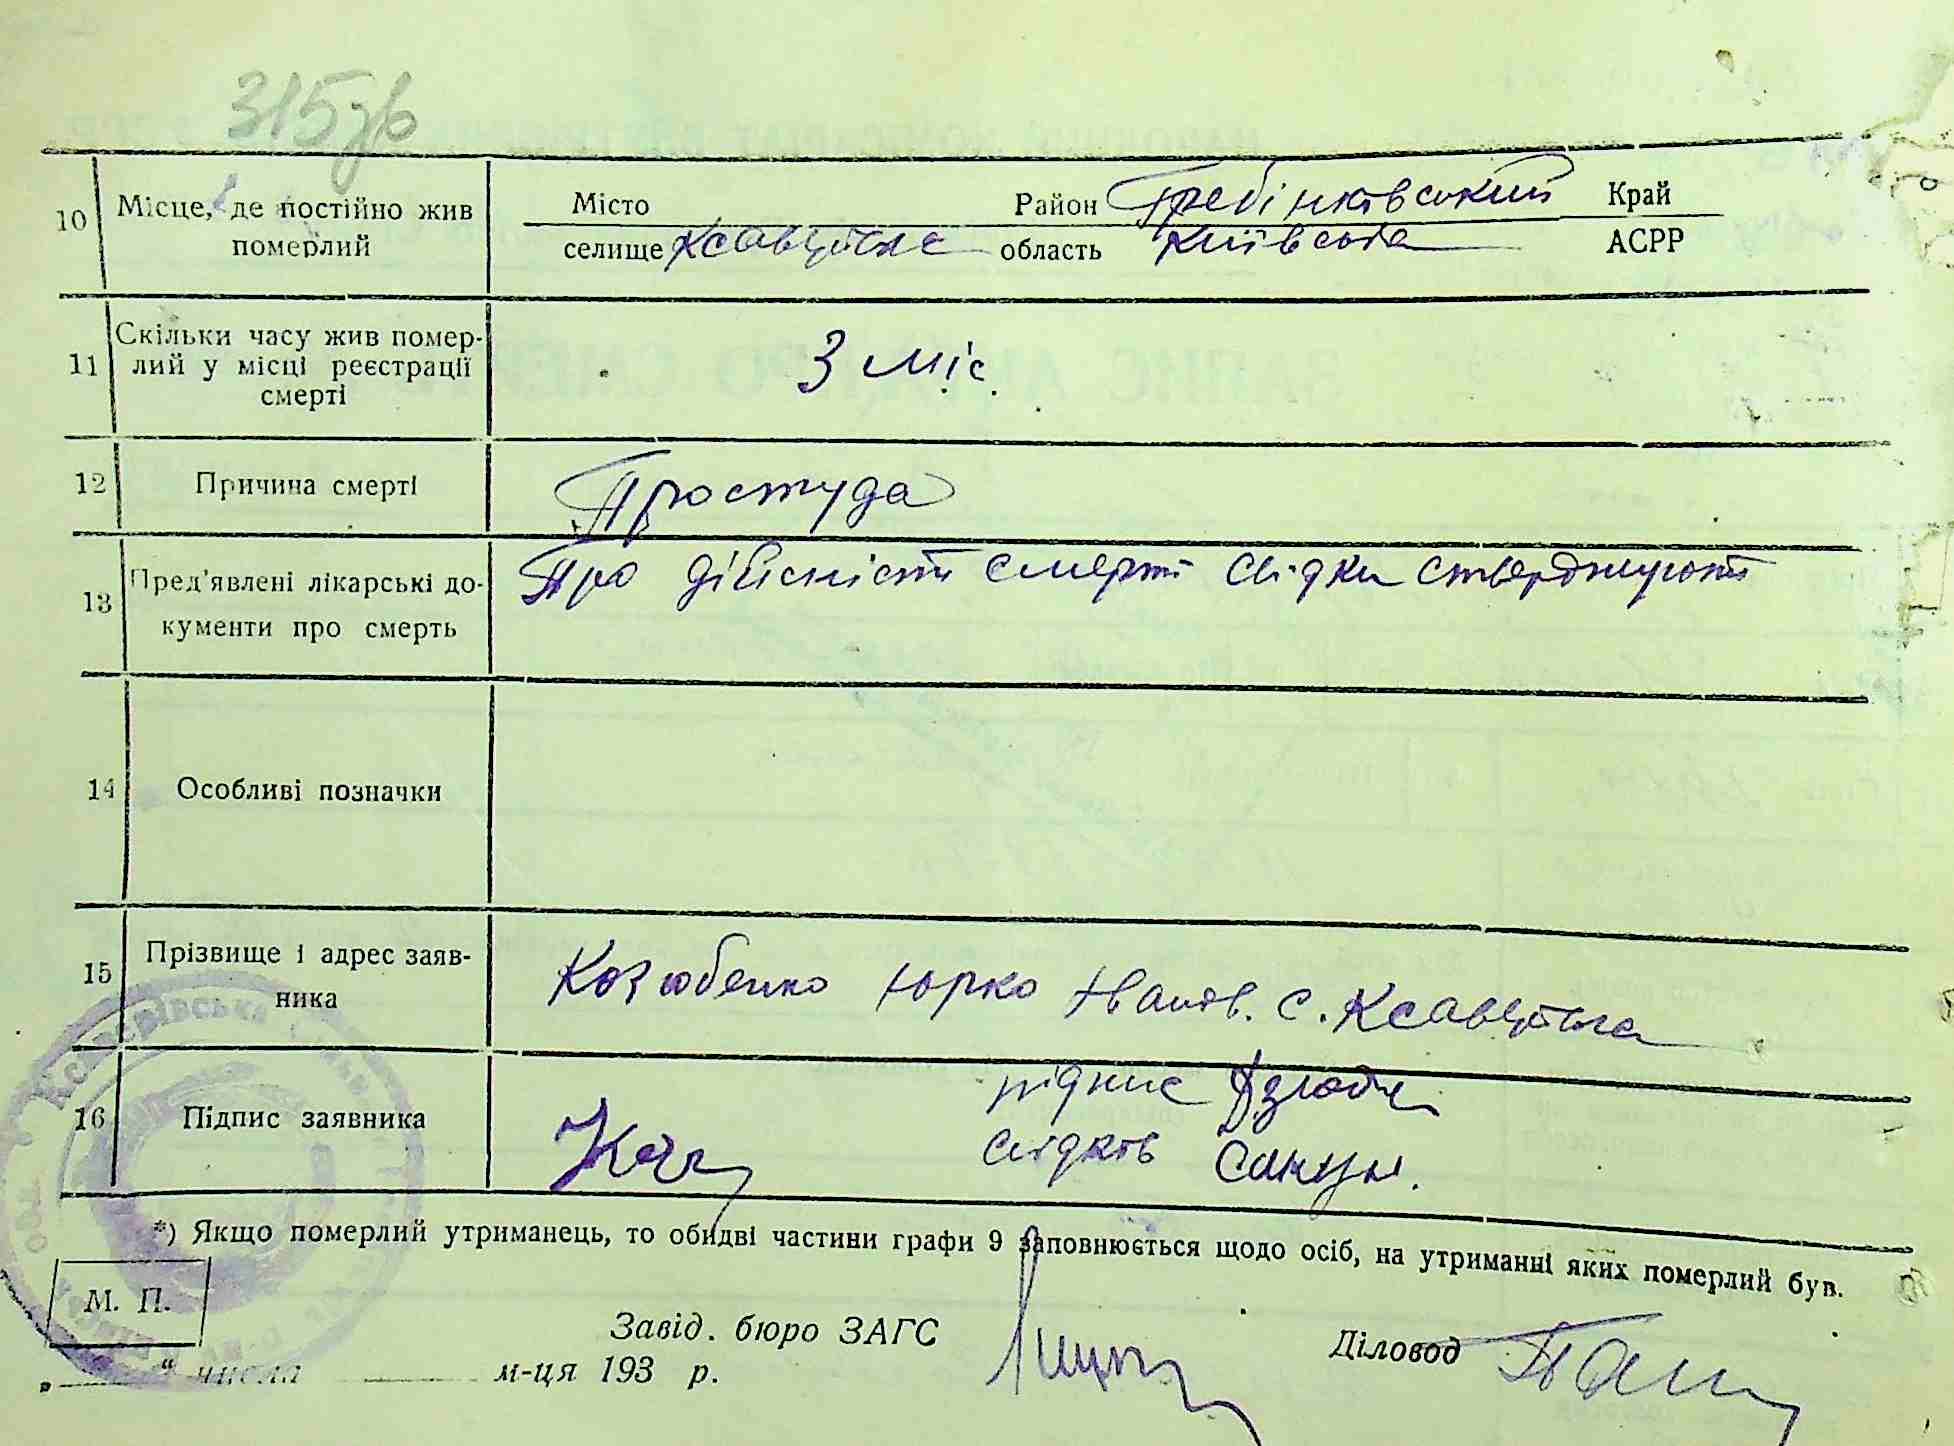 315зв
10 Місце, де постійно жив Місто Район Гребінківський Край
померлий селище Ксавертівка область Київська АСРР
11 Скільки часу жив помер-
лий у місці реєстрації
смерті
3 міс.
12 Причина смерті Простуда
13 Пред'явлені лікарські до-
кументи про смерть
Про дійсність смерті свідки стверджують
14 Особливі позначки
15 Прізвище і адрес заяв-
ника
Козюбенко Юрко Іванов. с. Ксавертівка
16 Підпис заявника
підпис Дзюба
свідків Сакун.
*) Якщо померлий утриманець, то обидві частини графи 9 заповнюється щодо осіб, на утриманні яких померлий був.
М. П.
Завід. бюро ЗАГС Діловод
„ " числа м-ця 193 р.